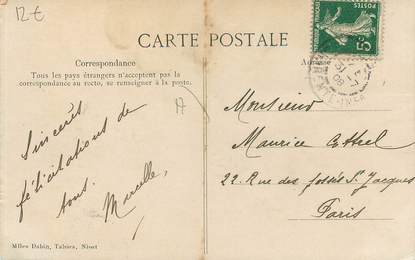 12€
CARTE POSTALE
Correspondance
Tous les pays étrangers n'acceptent pas la
correspondance au recto, se renseigner à la poste.
POSTES
5c
Sincères
félicitations de
tous.
Marcelle,
Monsieur
Maurice
22 Rue des fossés St. Jacques
Paris
Mlles Dabin, Tabacs, Niort